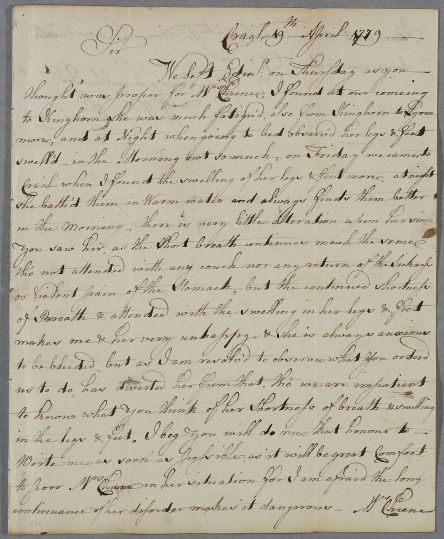 Crail 19th April 1779
Sir
We left Edinr. on Thursday as you
thought was proper for Mrs Cheene, I found at our comeing
to Kinghorn she was much fatigued, also from Kinghorn to
more, and at Night when going to bed observed her legs & feet
swelld - in the Morning not so much, on Friday we came to
Crail when I found the swelling of her legs & feet more, at night
she bathd them in Warm water and always finds them better
in the Morning. there is very little alteration upon her since
you saw her, as the Short breath continues much the same
tho not attended with any cough nor any return of the Sickness
or violent pain of the Stomack, but the continued shortness
of Breath & attended with the swelling in her legs & feet
makes me & her very unhappy & she is always anxious
to be bleeded, but as I am resolved to observe what you orderd
us to do, has diverted her from that, tho we are impatient
to know what you think of her Shortness of breath & swelling
in the legs & feet. I beg you will do me that honour to
Write me as soon as possible as it will be great Comfort
to poor Mrs Cheene in her situation for I am afraid the long
continuance of her disorder makes it dangerous - Mrs Cheene